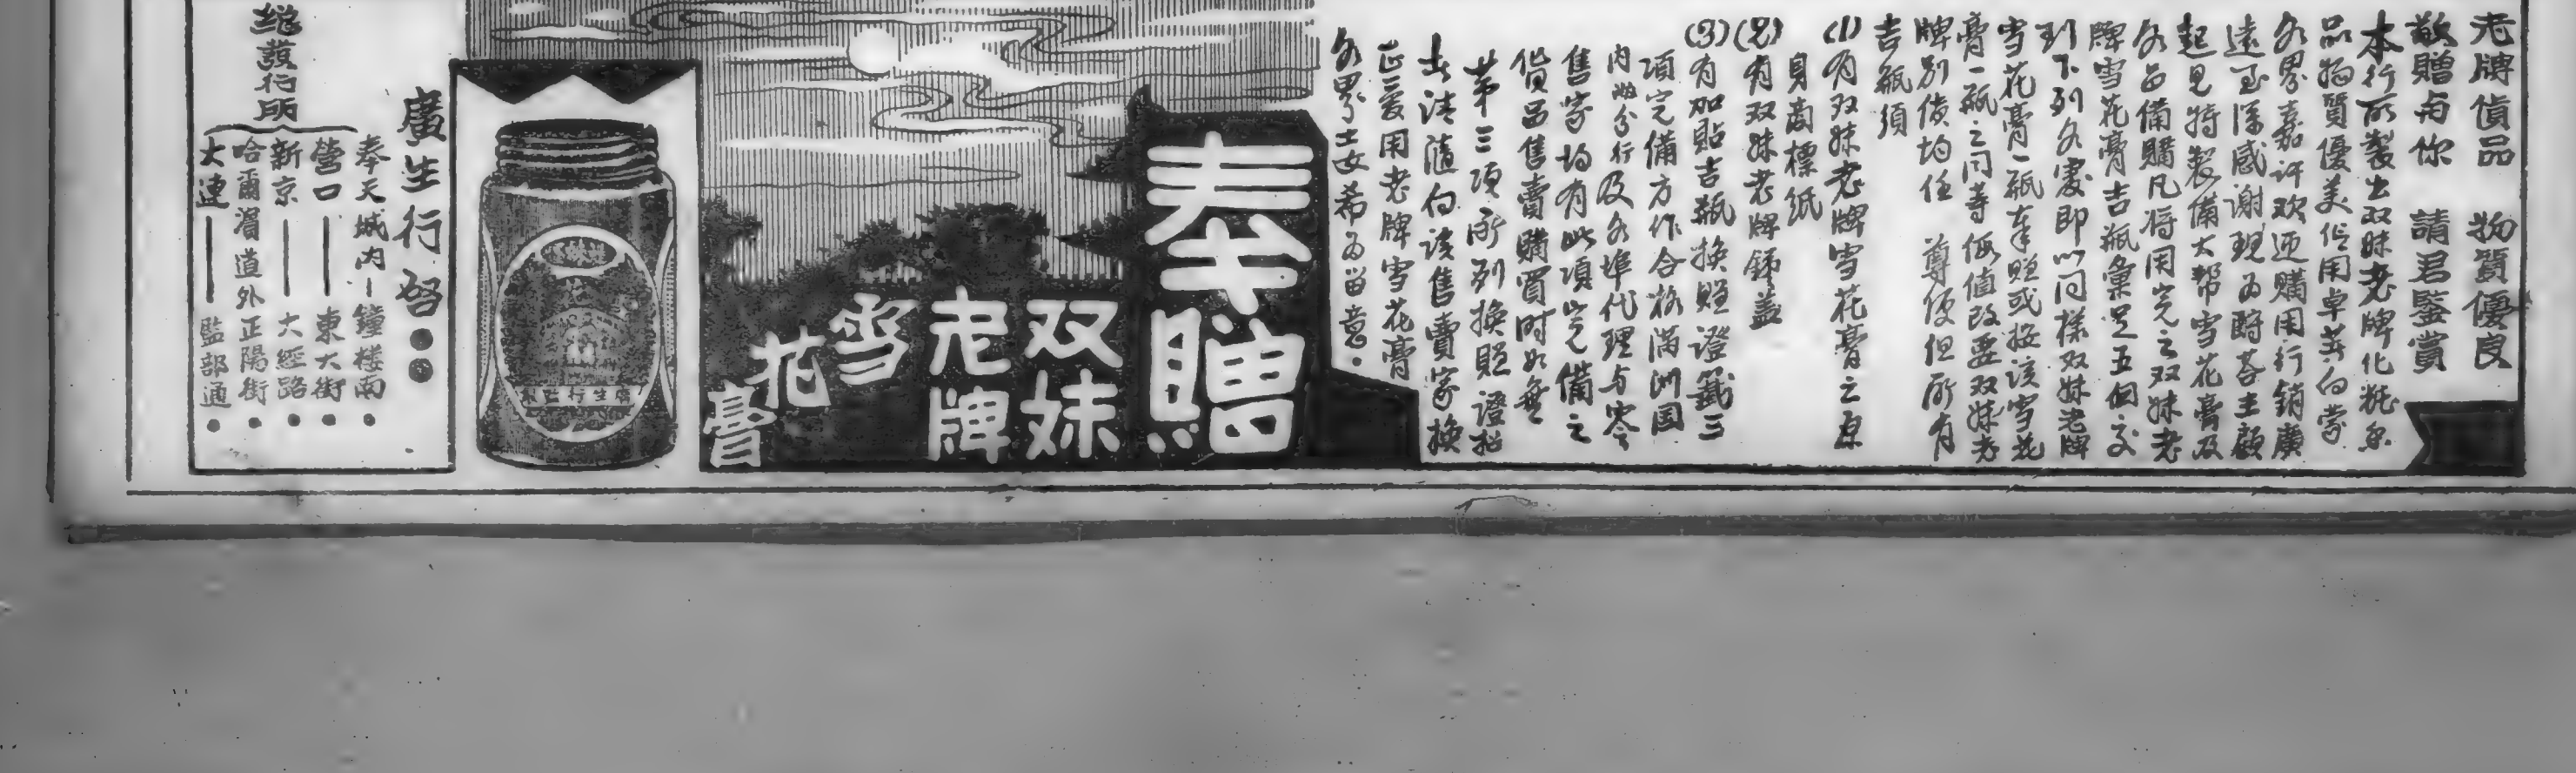 老牌貨品　物質優良
敬贈与你　請君鑒賞
本行所製出双妹老牌化粧乐
品物質優美作用卓著向蒙
各界嘉許欢迎購用行銷廣
遠至深感謝現为酧荅主顧
起見特製備大帮雪花膏及
各品備贈凡将用完之双妹老
牌雪花膏吉瓶彙足五個交
到下列各處即以同樣双妹老牌
雪花膏一瓶奉贈或按该雪花
膏一瓶之同等價值改要双妹老
牌别貨均任　尊便但所有
吉瓶須
(1)有双妹老牌雪花膏之原
身商標紙
(2)有双妹老牌锑盖
(3)有加貼吉瓶換贈證籤三
項完備方作合格滿洲国
内敝分行及各埠代理与零
售家均有此項完備之
貨品售賣購買时如無
第三項所列換贈證招
者请隨向该售賣家換
正爱用老牌雪花膏
各界士女希为留意．
奉贈
双妹
老牌
雪花膏
廣生行监制
廣生行啓
總發行所
奉天城内－鐘楼南
營口——東大街
新京——大經路
哈爾濱道外正陽街
大連——監部通